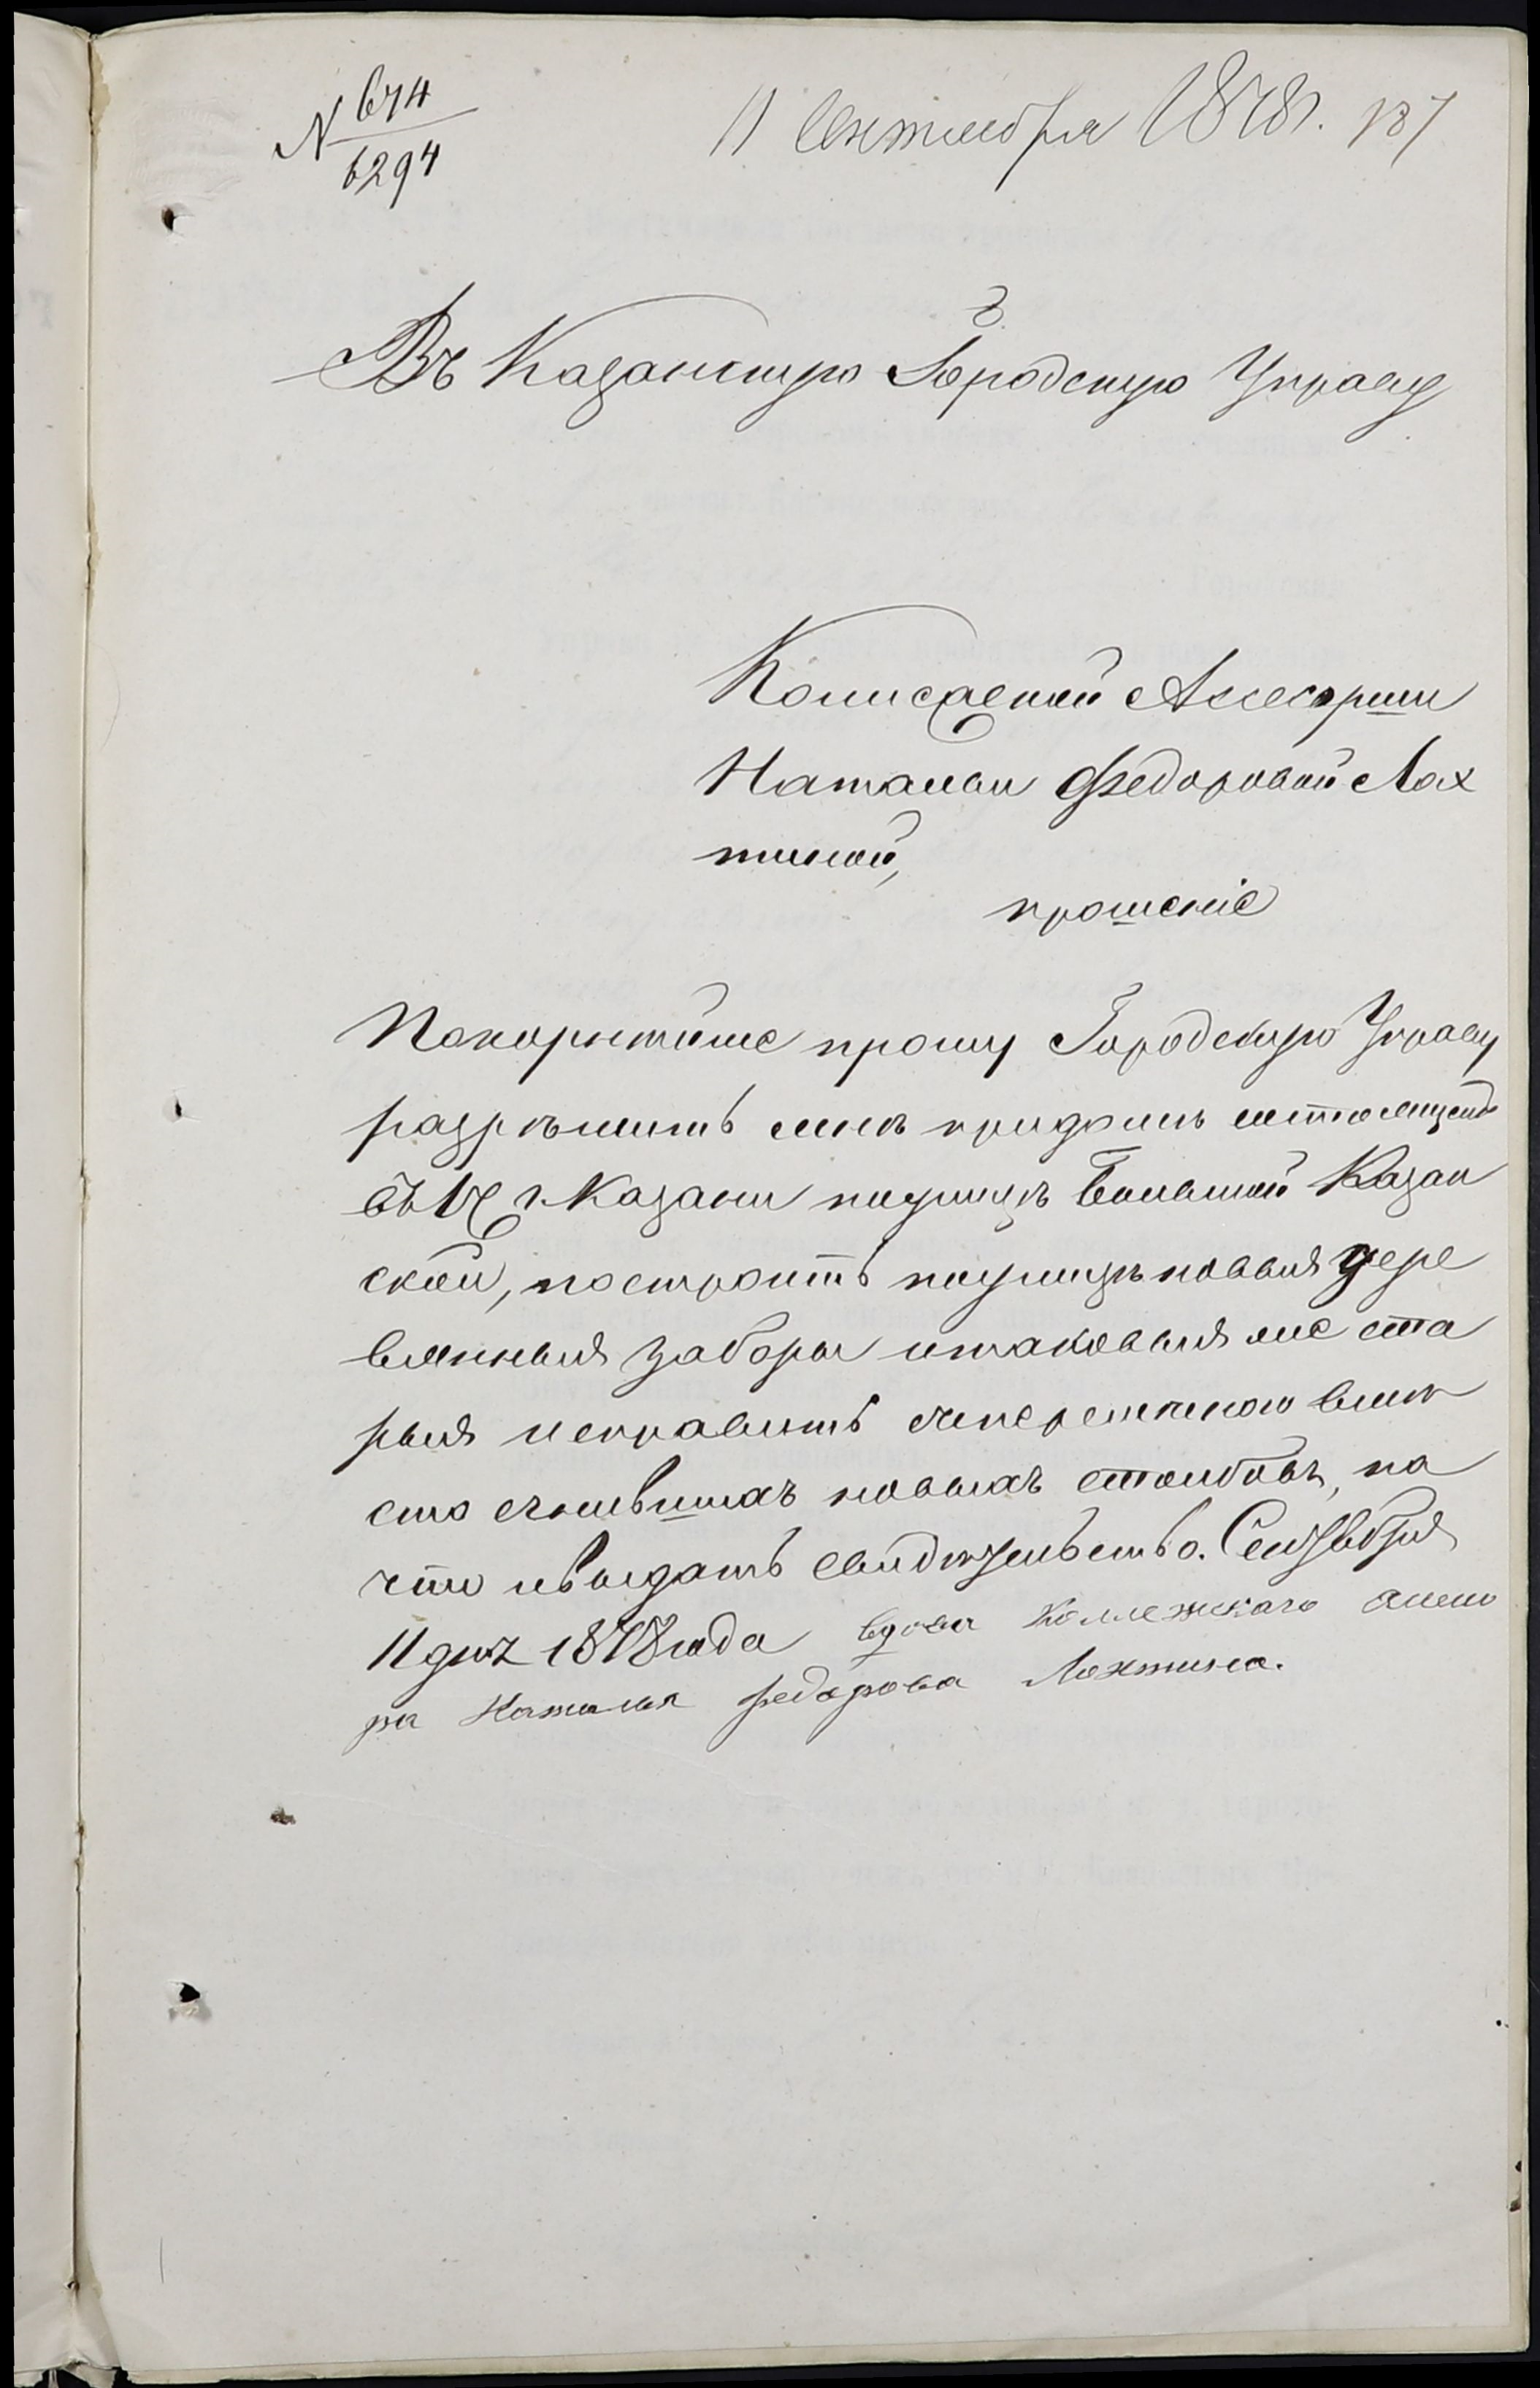 N 674
6294
11 Сентября 1878. 187
Въ Казанскую Городскую Управу
Колисдской Ассесорши
Натальи Федоровой Лах
тиной,
прошеніе
Покорнѣйше прошу Городскую Управу
разрѣшить мнѣ придомѣ состоящемъ
въ г. Казани поулицѣ Большой Казан
ской, построить поулицѣ новыя дере
вянныя заборы итаковыя же ста
рыя исправить сперемѣною вмѣ
сто сгнившихъ новыхъ столбовъ, на
что ивыдать свидѣтельство. Сентября
11 дня 1878 года вдова Коллежскаго асесо
ра Наталья федорова Лахтина.